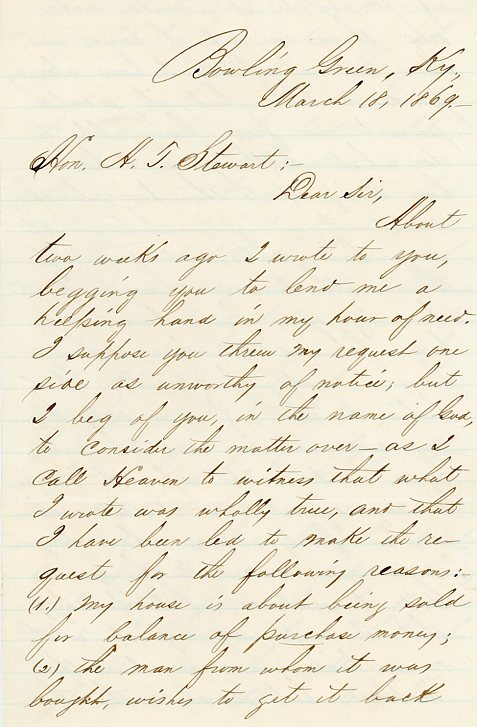 Bowling Green, Ky.,
March 18, 1869.-
Hon. A. T. Stewart:-
Dear Sir,
About
two weeks ago I wrote to you,
begging you to lend me a
helping hand in my hour of need.
I suppose you threw my request one
side as unworthy of notice; but
I beg of you, in the name of God,
to consider the matter over - as I
call Heaven to witness that what
I wrote was wholly true, and that
I have been led to make the re-
quest for the following reasons:-
(1.) My house is about being sold
for balance of purchase money;
(2) the man from whom it was
bought, wishes to get it back